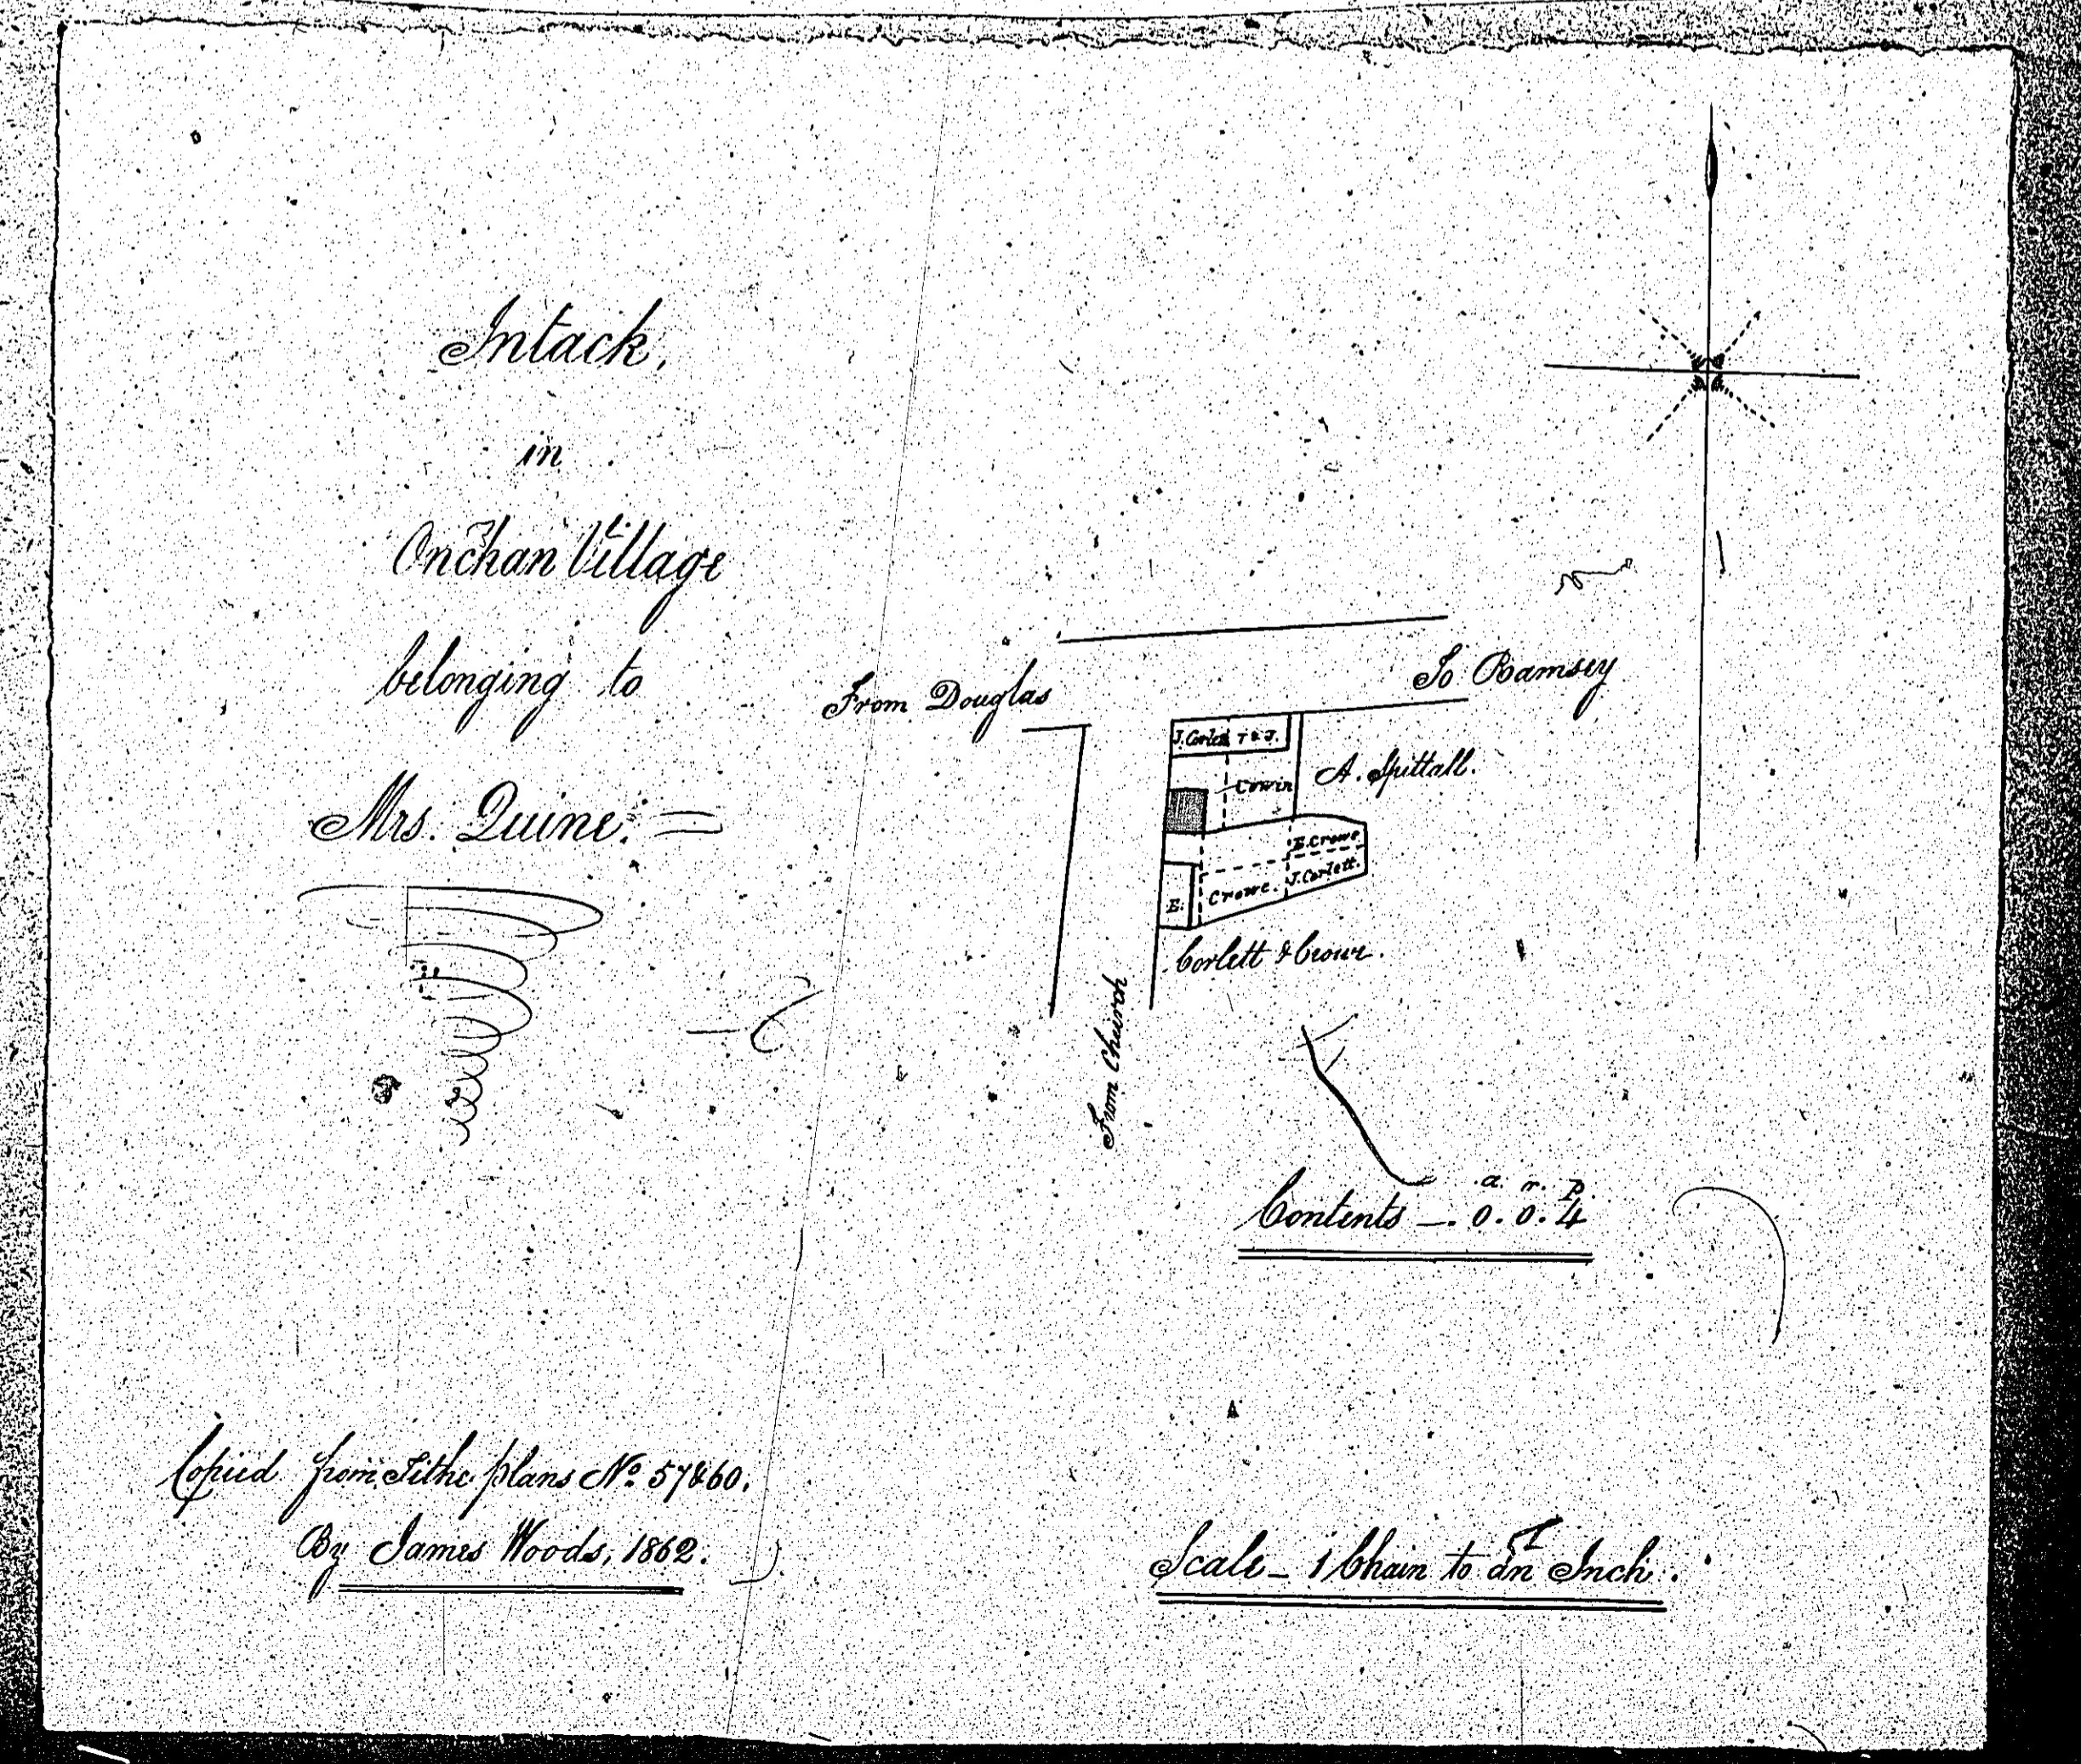 Intack,
in
Onchan Village
belonging to
Mrs. Quine.
From Douglas
To Ramsey
J. Corlett T & J.
Cowin
A. Spittall.
E. Crowe
Crowe. J. Corlett.
E.
Corlett & Crowe.
From Church
a. r. p.
Contents —. 0. 0. 4
Copied from Tithe plans No. 57 & 60.
By James Woods, 1862.
Scale — 1 Chain to an Inch.